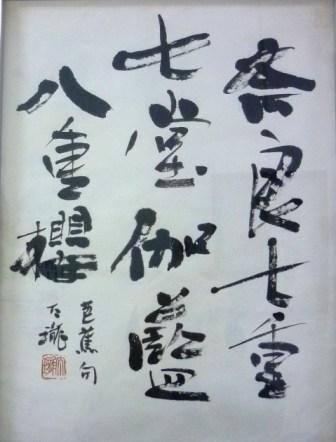 奈良七重
七堂伽藍
八重櫻
芭蕉句